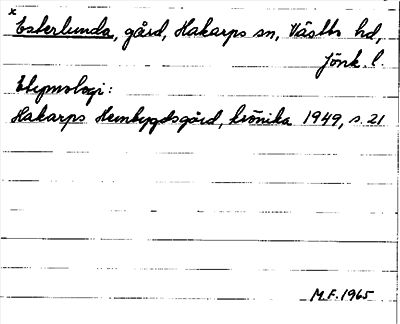 x Esterlunda, gård, Hakarps sn, Västbo hd,
Jönk. l.
Etymologi:
Hakarps Hembygdsgård, krönika 1949, s. 21
M.F. 1965